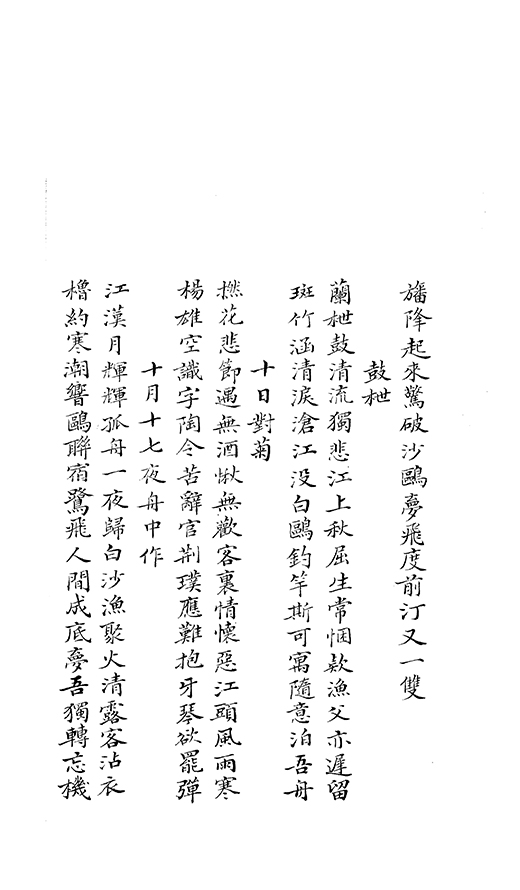 旛降起來驚破沙鷗夢飛度前汀又一雙
鼓枻
蘭枻鼓清流獨悲江上秋屈生常悃款漁父亦遲留
斑竹涵清淚滄江没白鷗釣竿斯可寓隨意泊吾舟
十日對菊
撚花悲節過無酒愀無歡客裏情懷惡江頭風雨寒
楊雄空識字陶令苦辭官荆璞應難抱牙琴欲罷彈
十月十七夜舟中作
江漢月輝輝孤舟一夜歸白沙漁聚火清露客沾衣
櫓約寒潮響鷗聯宿鷺飛人間成底夢吾獨轉忘機